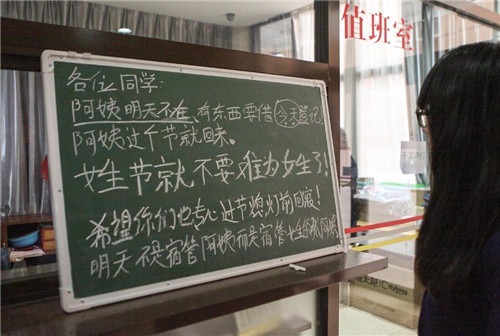 值班室
各位同学:
阿姨明天不在,有东西要借今天登记
阿姨过个节就回来。
女生节就不要难为女生了!
希望你们也专心过节熄灯前回寝!
明天不是宿管阿姨而是宿管女生的